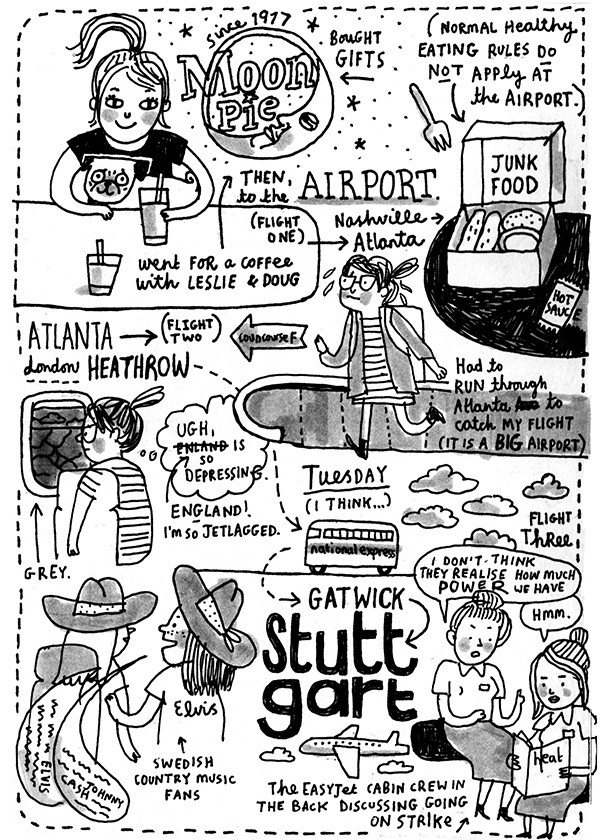 since 1917
Moon
Pie
BOUGHT
GIFTS
(NORMAL Healthy
EATING RULES DO
NOT APPLY AT
the AIRPORT.)
JUNK
FOOD
HOT
SAUCE
THEN,
to the AIRPORT
(FLIGHT
ONE)
Nashville
Atlanta
went FOR a COFFEE
with LESLIE & DOUG
ATLANTA
(FLIGHT
TWO)
London HEATHROW
CONCOURSE F
Had to
RUN through
Atlanta to
catch MY FLIGHT
(IT IS A BIG AIRPORT)
UGH,
ENLAND IS
SO
DEPRESSING.
ENGLAND!
I'm so JETLAGGED.
GREY.
TUESDAY
(I THINK...)
national express
FLIGHT
THREE
GATWICK
Stutt
gart
I DON'T THINK
THEY REALISE HOW MUCH
POWER WE HAVE
HMM.
Elvis
SWEDISH
COUNTRY MUSIC
FANS
ELVIS
JOHNNY
CASH
heat
The EASYJet CABIN CREW IN
THE BACK DISCUSSING GOING
ON STRIKE